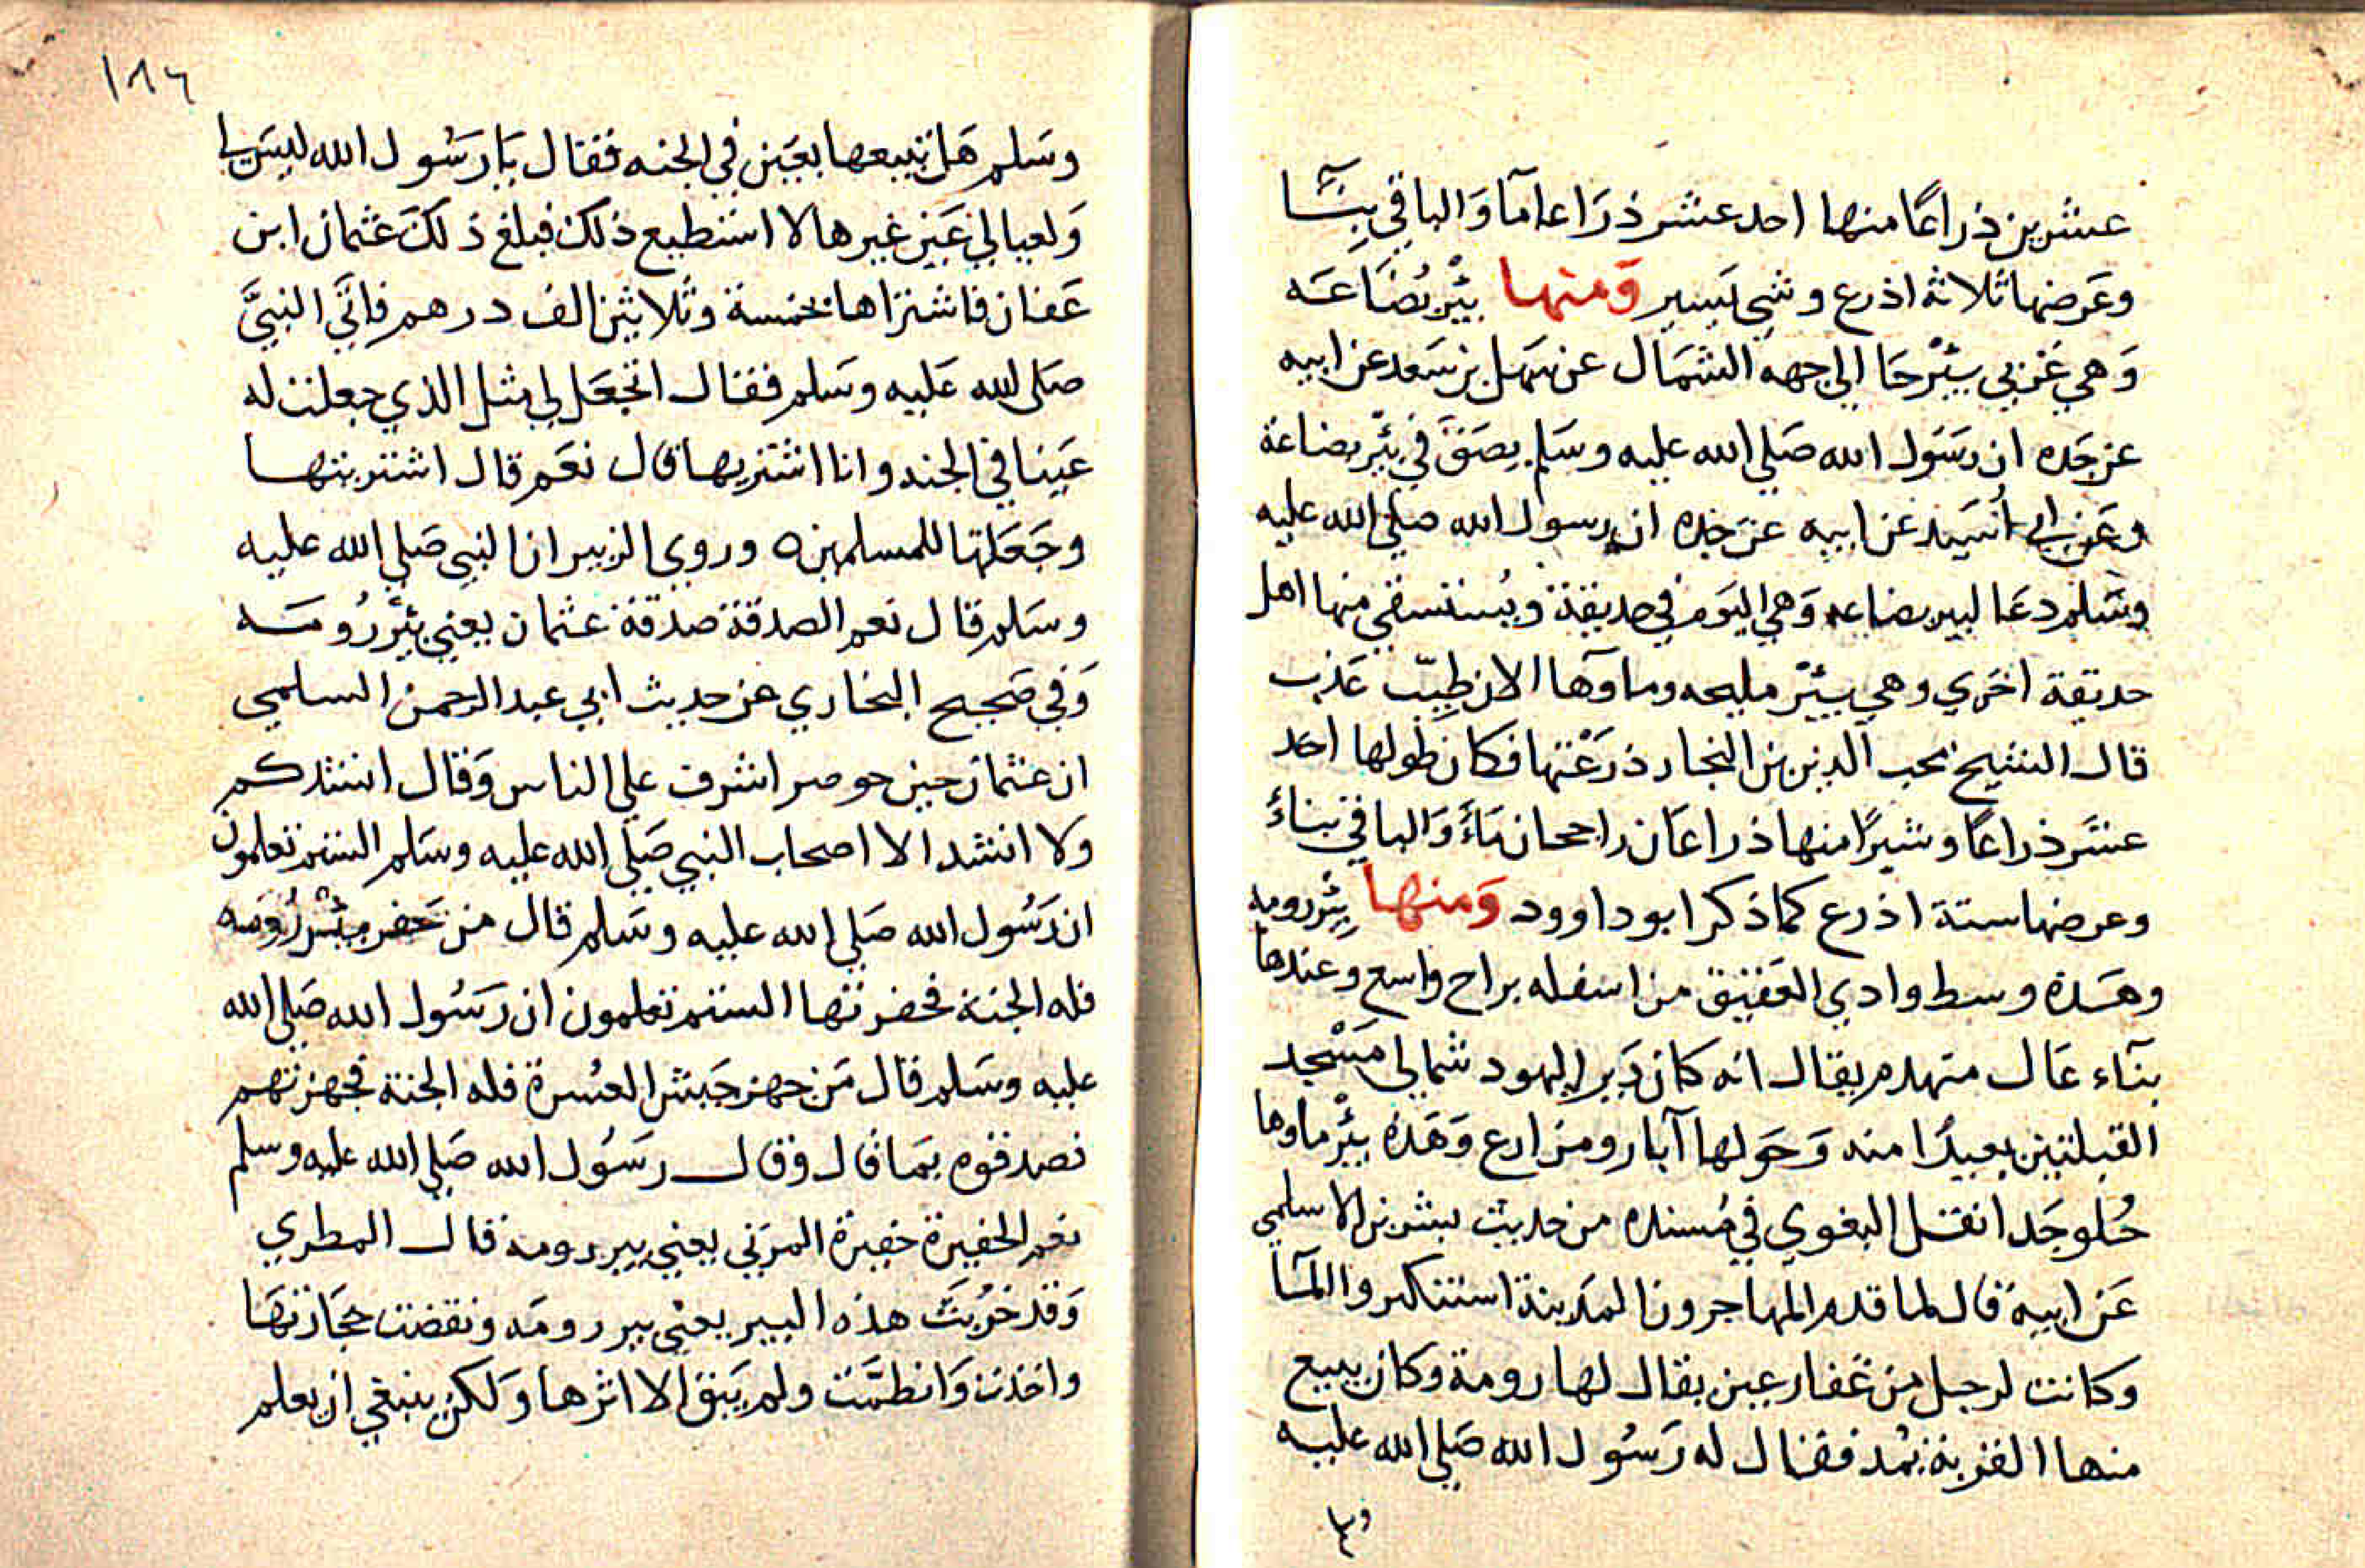 عشرين ذراعًا منها احد عشر ذرَاعا مآ وَالباقي بِنَآا
وعَرضها ثلاثة اذرع وشي يَسير وَمنها بِئْر بُضَاعَه
وَهي غَربي بِئْرحَا الي جهه الشمَال عن سَهل بن سَعد عن ابيه
عن جَده ان رسَوُل الله صَلي الله عليه وسَلم بصَقَ في بِئْر بضاعة
وعَن ابي اُسَيد عَن ابيه عن جَده ان رسول الله صلي الله عليه
وسَلم دعَا لبير بضاعه وَهي اليَوم في حديقة ويُستسقي منها اهل
حديقة اخَري وهي بِئْر مليحه وماوَها الان طيِّب عَذب
قال الشيخ محب الدين بن النجار ذرَعْتها فكان طولها احَد
عشَر ذراعًا وشبرًا منها ذراعَان راجحان مَاءً وَالباقي بناءً
وعرضها ستة اذرع كما ذكر ابو داوود وَمنها بِئْر رومه
وهَذه وسط وادي العَقيق من اسفله براح واسع وعندها
بنَآء عَال متهدم يقال انه كان دَيرا ليهود شمالي مَسْجد
القبلتين بعيدًا منه وَحَولها آبار ومزارع وَهَذه بئْر ماوها
حُلو جَدا نقل البغوي في مُسنده من حديث بشر بن الاسلمي
عَن ابيه قال لما قدم المهاجرون المدَينة استنكروا المآا
وكانت لرجل من غَفار عين يقال لها رومة وكان يبيع
منها القربة بمُد فقال له رَسُول الله صَلي الله عليه
و
١٨٦
وسَلم هَل تبيعها بعَين في الجنه فقال يَا رسَوُل الله ليسَ لي
وَلعيالي عَين غيرها لا استطيع ذلك فبلغ ذلكَ عَثمان ابن
عَفان فاشتراها بخمسة وثلاثين الف درهم فاتَي النبيَّ
صَلي الله عَليه وسَلم فقال اتجعَل لي مثل الذي جعلت له
عَينا في الجنه وانا اشتريها قال نعَم قال اشتريتها
وجَعَلتها للمسلمين ٥ وروي الزبير ان النبي صَلي الله عليه
وسَلم قال نعم الصدقة صدقة عثمان يعني بِئْر رُومَه
وَفي صَحيح البخاري عن حديث ابي عبد الرحمن السلمي
ان عثمان حين حوصر اشرف علي الناس وَقال انشدكم
وَلا انشد الا اصحاب النبي صَلي الله عليه وسَلم الستم تعلمون
ان رَسُول الله صَلي الله عليه وسَلم قال من حَفر بِئْر رُومَه
فله الجنة فحفرتها الستم تعلمون ان رَسُول الله صَلي الله
عليه وسَلم قال مَن جهز جَيش العُسرة فله الجنة فجهزتهم
فصدقوه بمَا قال وقال رسَوُل الله صَلي الله عليه وسلم
نعم الحفيرة حفيرة المزَني يعني بير رومة قال المطري
وَقد خرُبتَ هذه البير يعني بير رومَه ونقضت حجَارتهَا
واخذت وَانطمَّت ولم يَبق الا اثرها وَلكن ينبغي ان يعلم